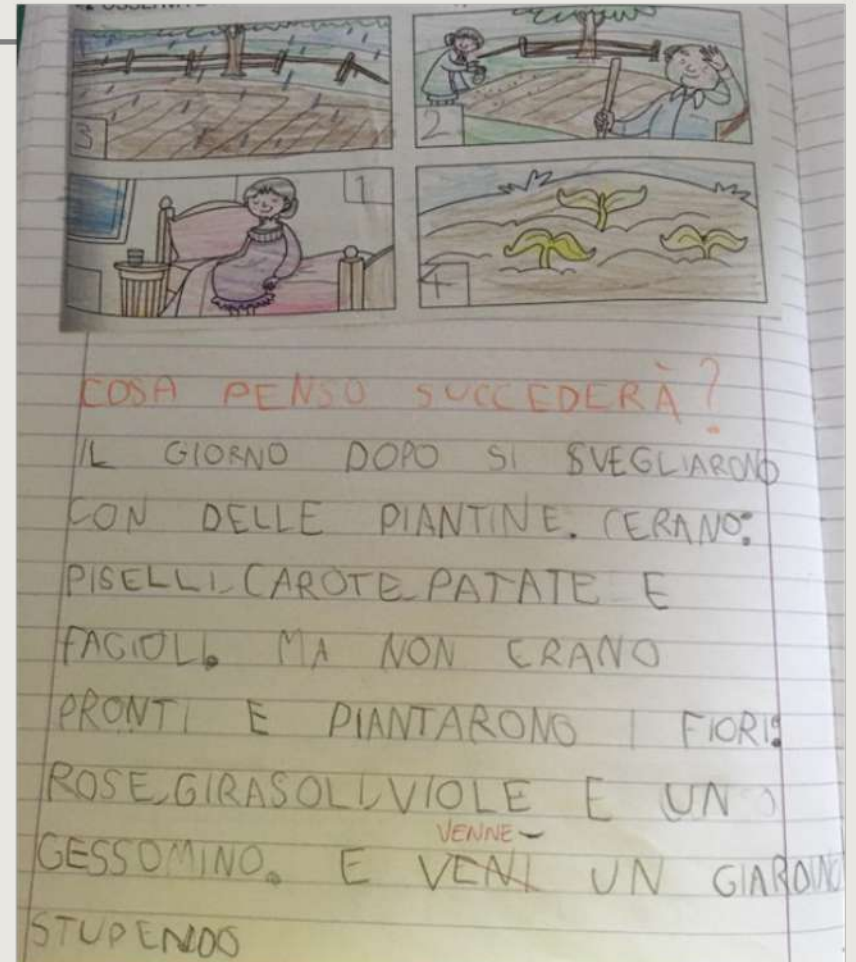 3
2
1
4
COSA PENSO SUCCEDERÀ?
IL GIORNO DOPO SI SVEGLIARONO
CON DELLE PIANTINE. CERANO:
PISELLI, CAROTE, PATATE E
FAGIOLI. MA NON ERANO
PRONTI E PIANTARONO I FIORI:
ROSE, GIRASOLI, VIOLE E UN
VENNE
GESSOMINO. E VENI UN GIARDINO
STUPENDO